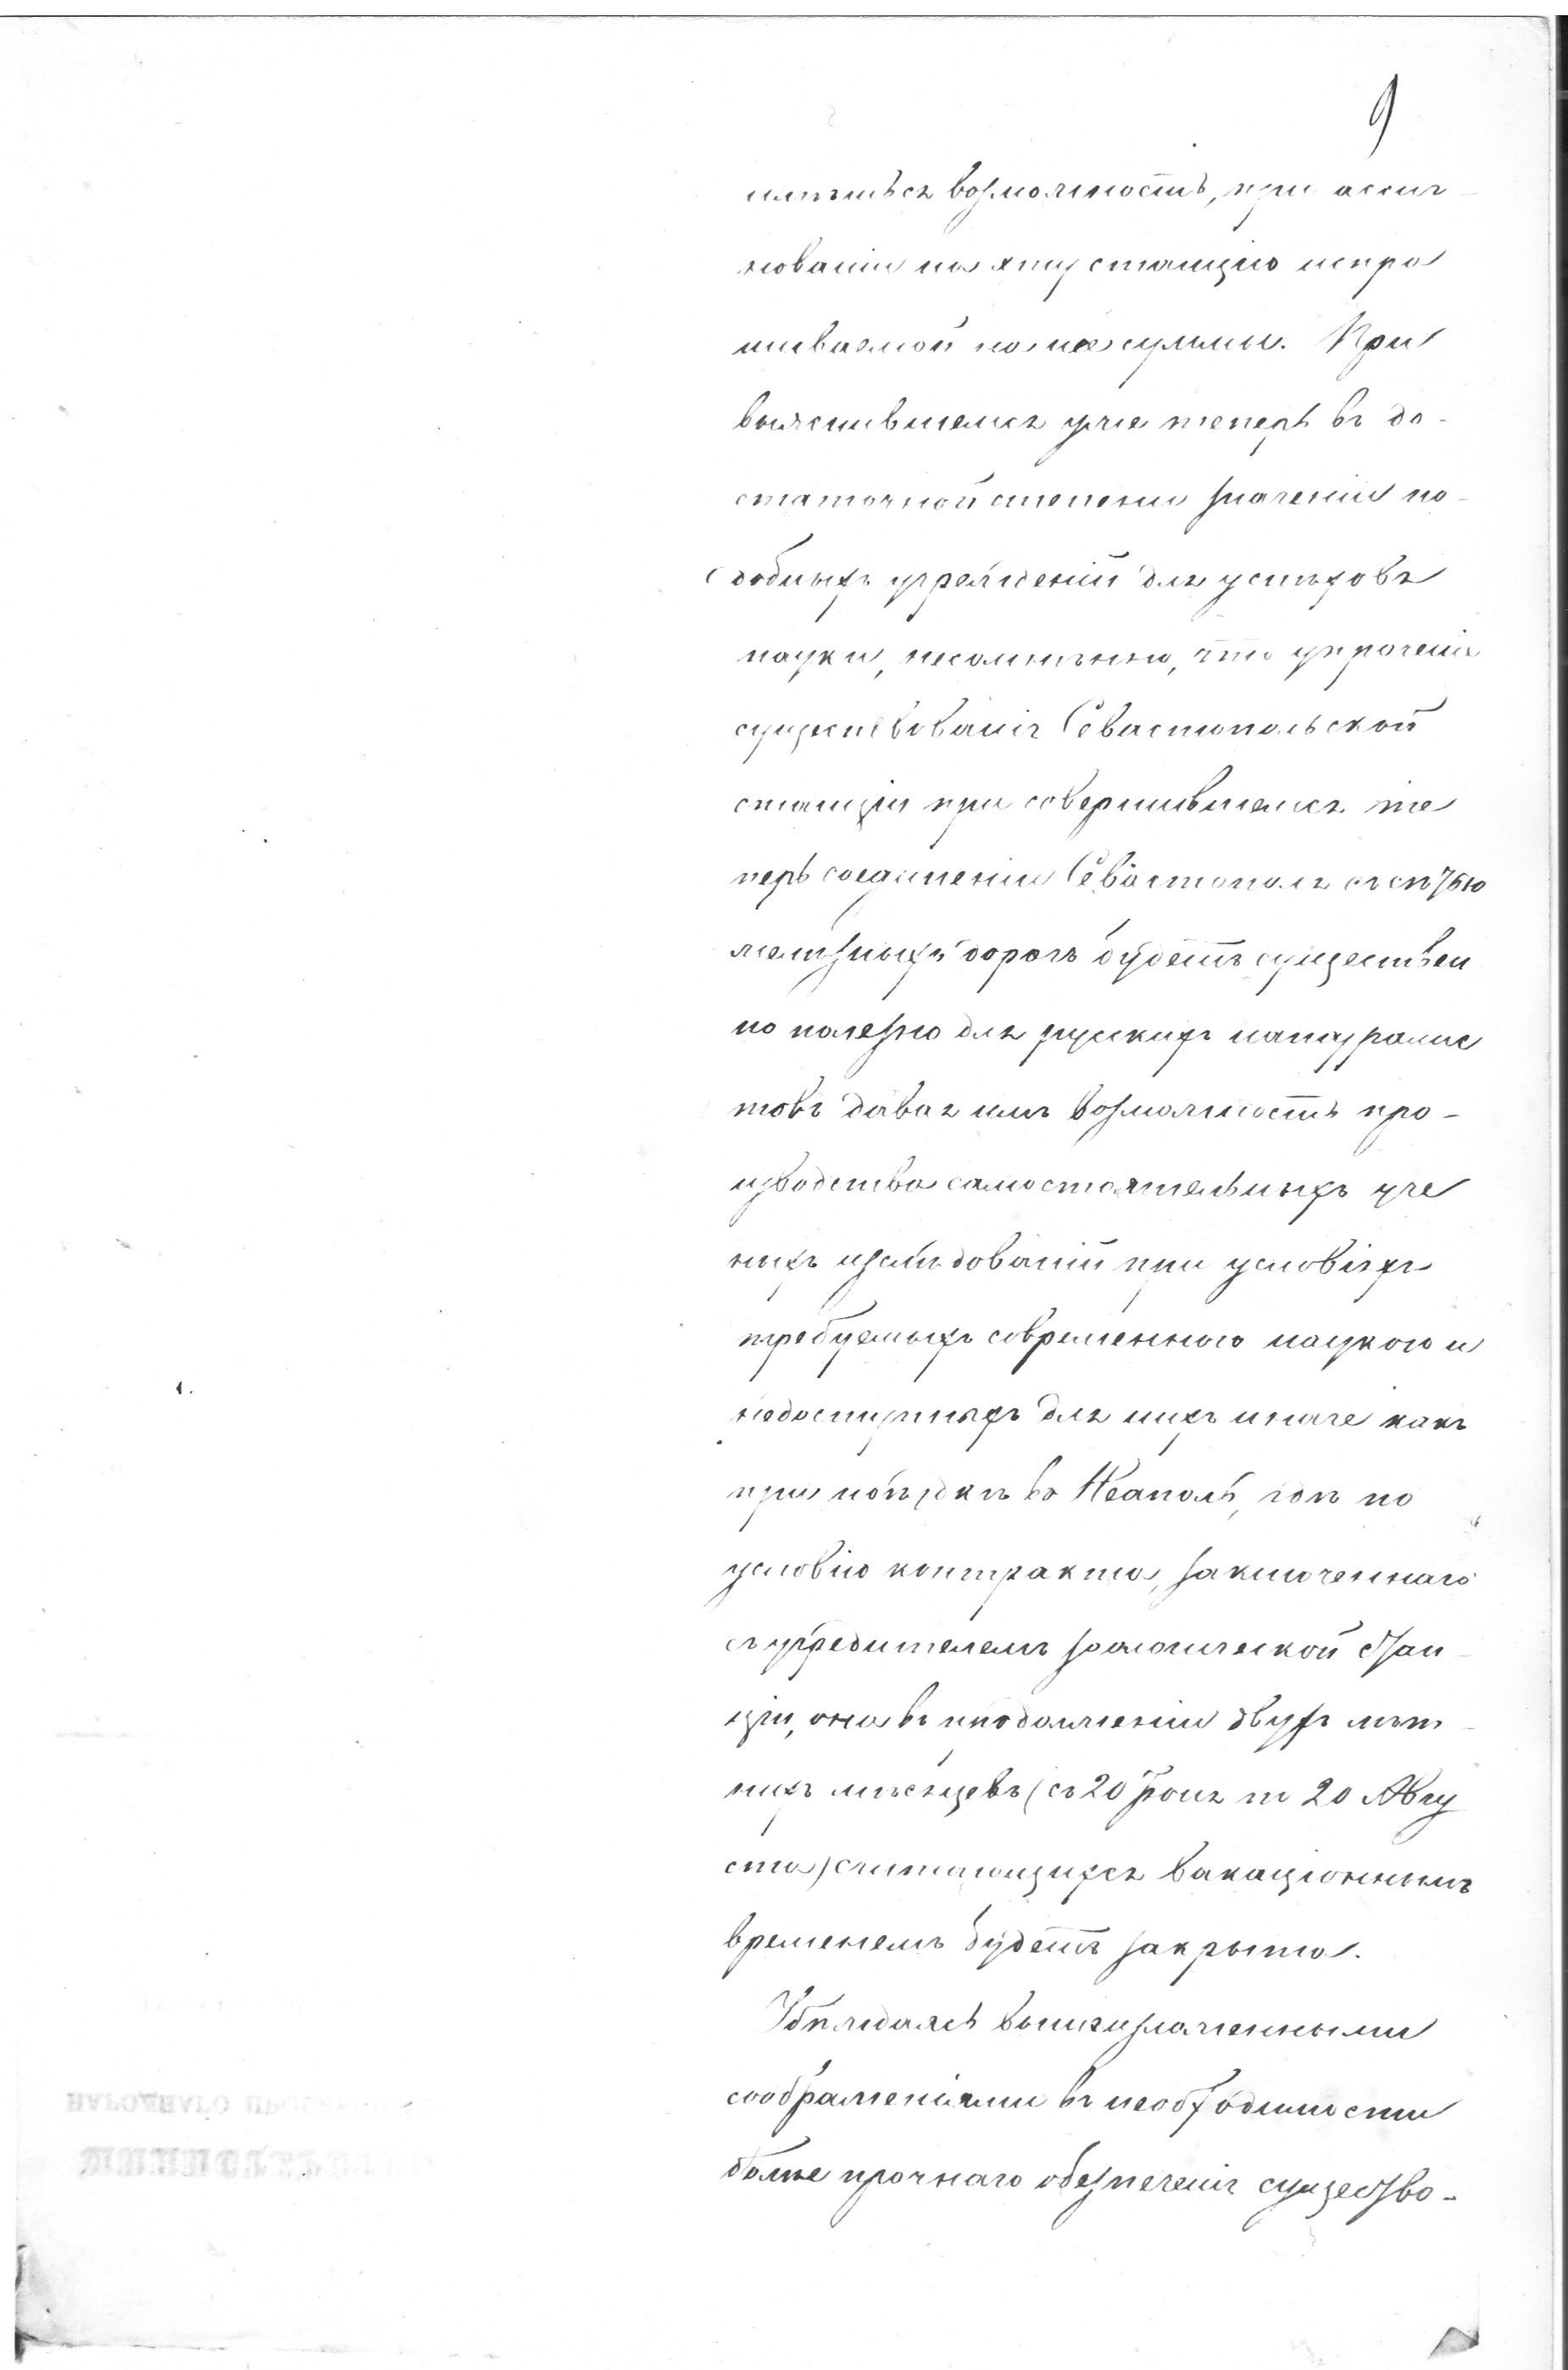 9
имѣться возможность, при ассиг-
нованіи на эту станцію испра
шиваемой на нее суммы. При
выяснившемся уже теперь въ до-
статочной степени значеніи по-
добныхъ учрежденій для успѣховъ
науки, несомнѣнно, что упроченіе
существованія Севастопольской
станціи при совершившемся те
перь соединеніи Севастополя съ сѣтью
желѣзныхъ дорогъ будетъ существен
но полезно для русскихъ натуралис
товъ давая имъ возможность про-
изводства самостоятельныхъ уче
ныхъ изслѣдованій при условіяхъ
требуемыхъ современною наукою и
недоступныхъ для нихъ иначе какъ
при поѣздкѣ въ Неаполь, гдѣ по
условію контракта, заключеннаго
съ учредителемъ зоологической Стан-
ціи, она въ продолженіи двухъ лѣт-
нихъ мѣсяцевъ (съ 20 Іюня по 20 Авгу
ста) считающихся вакаціоннымъ
временемъ будетъ закрыта.
Убѣждаясь вышеизложенными
соображеніями въ необходимости
болѣе прочнаго обезпеченія существо-